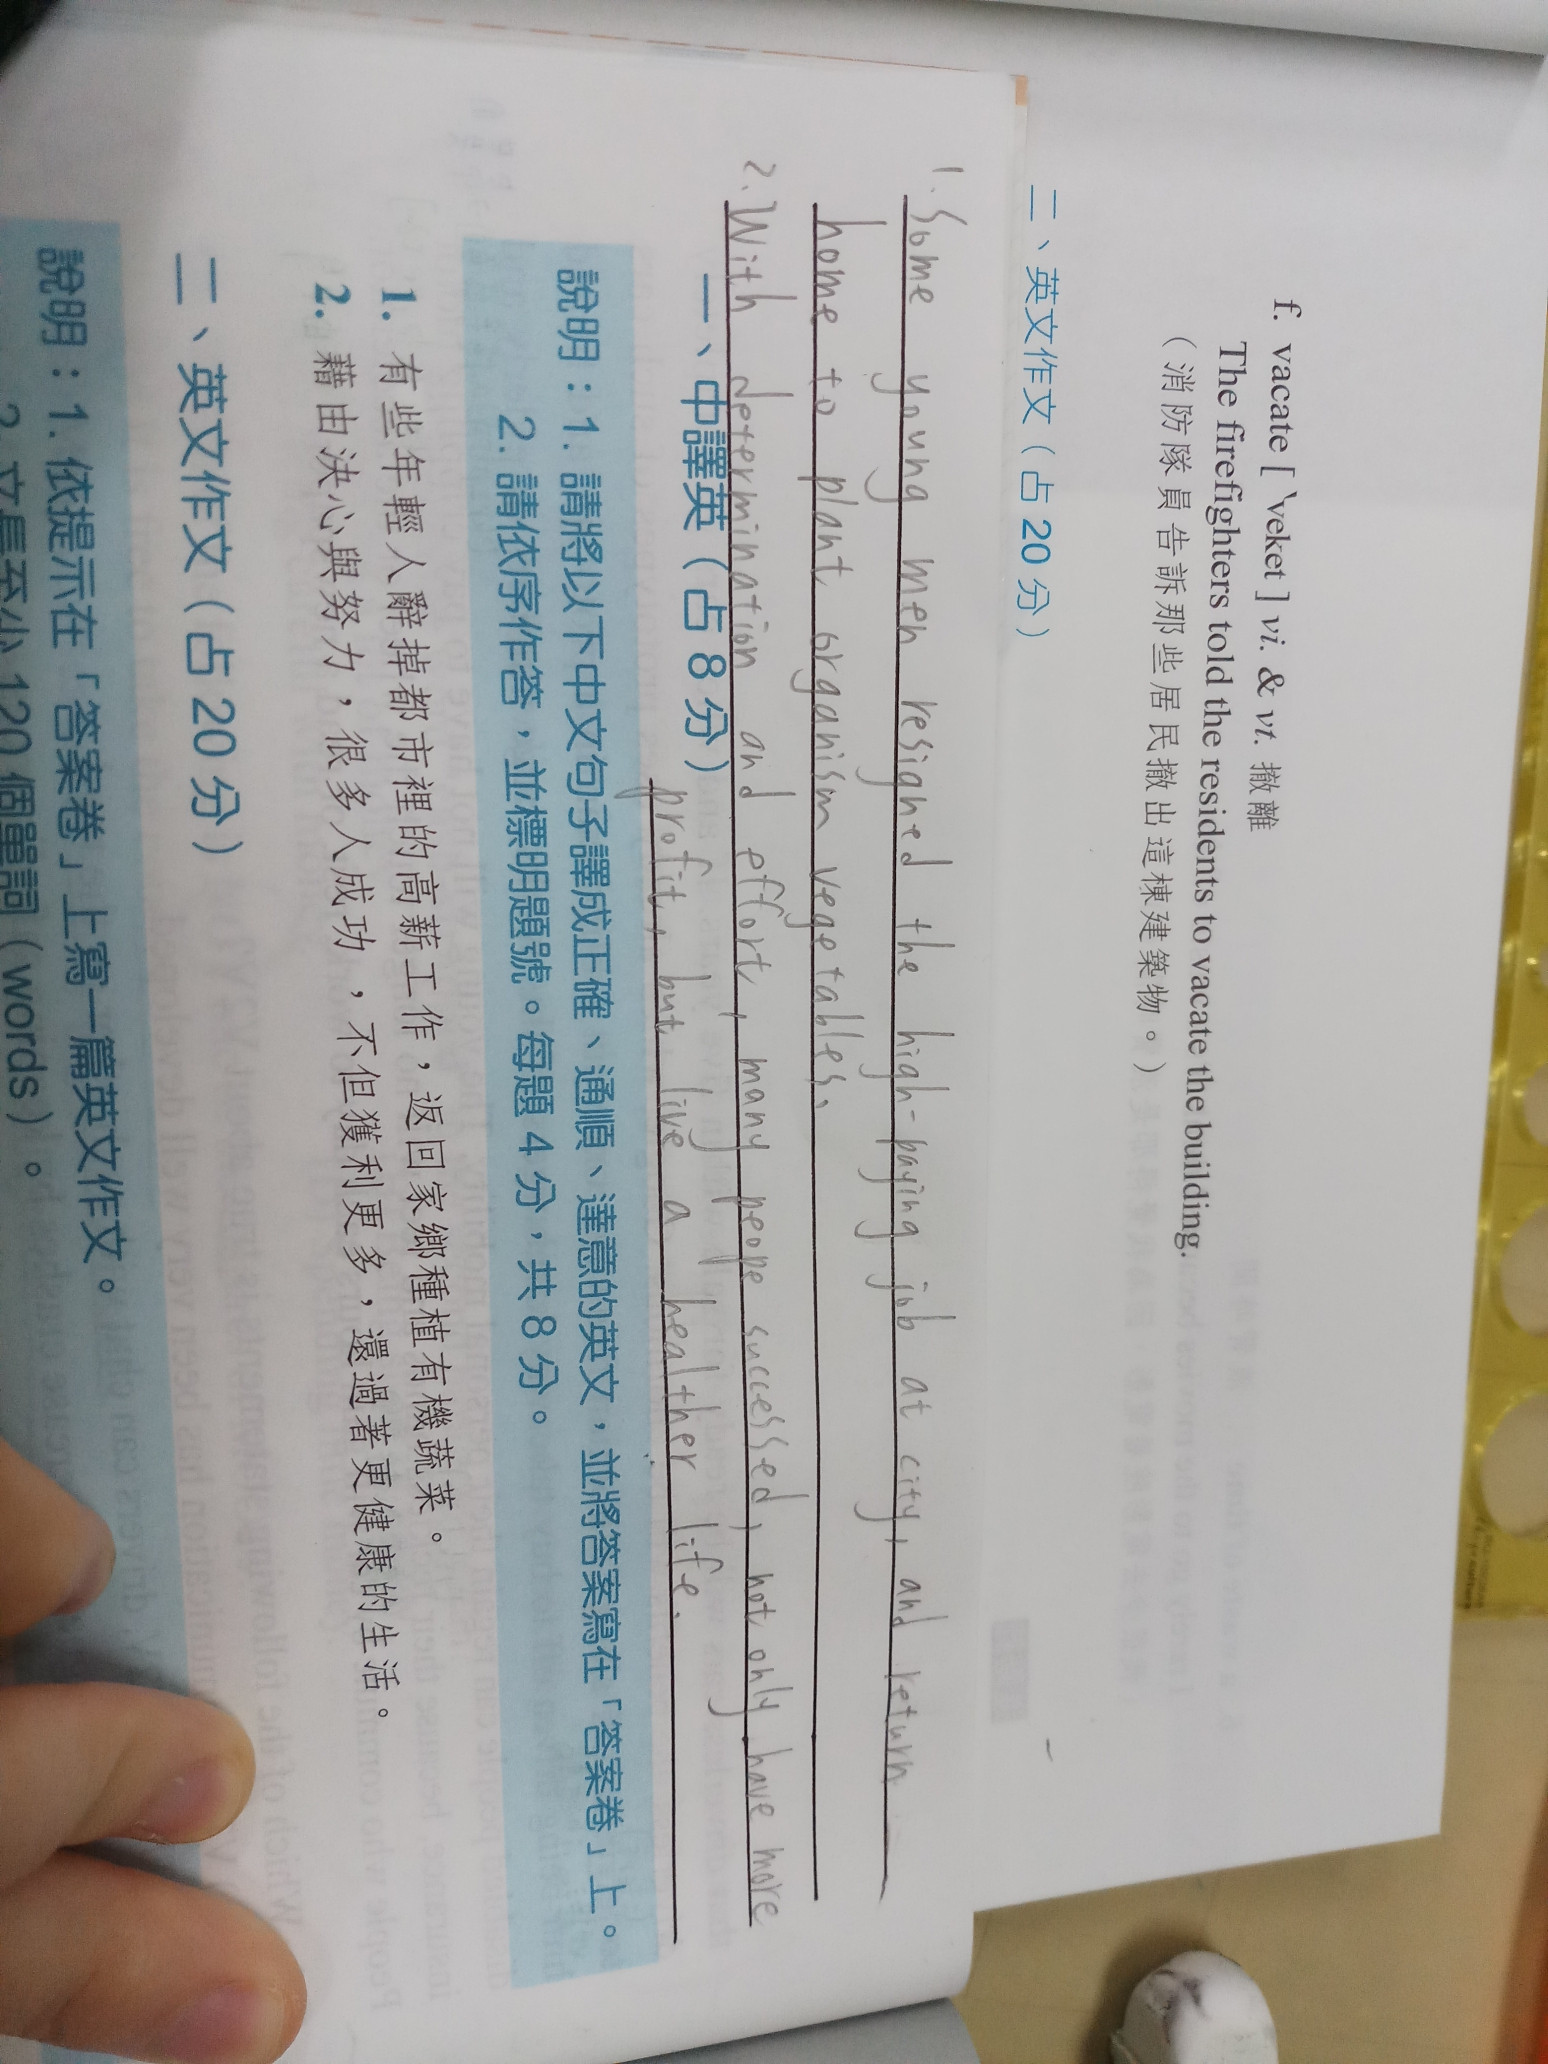 f. vacate [ ˋveket ] vi. & vt. 撤離
The firefighters told the residents to vacate the building.
（消防隊員告訴那些居民撤出這棟建築物。）
二、英文作文（占 20 分）
1. Some young men resigned the high-paying job at city, and return
home to plant organism vegetables.
2. With determination and effort, many peope successed, not only have more
profit, but live a healther life.
一、中譯英（占 8 分）
說明：1. 請將以下中文句子譯成正確、通順、達意的英文，並將答案寫在「答案卷」上。
2. 請依序作答，並標明題號。每題 4 分，共 8 分。
1. 有些年輕人辭掉都市裡的高薪工作，返回家鄉種植有機蔬菜。
2. 藉由決心與努力，很多人成功，不但獲利更多，還過著更健康的生活。
二、英文作文（占 20 分）
說明：1. 依提示在「答案卷」上寫一篇英文作文。
2. 文長至少 120 個單詞（words）。